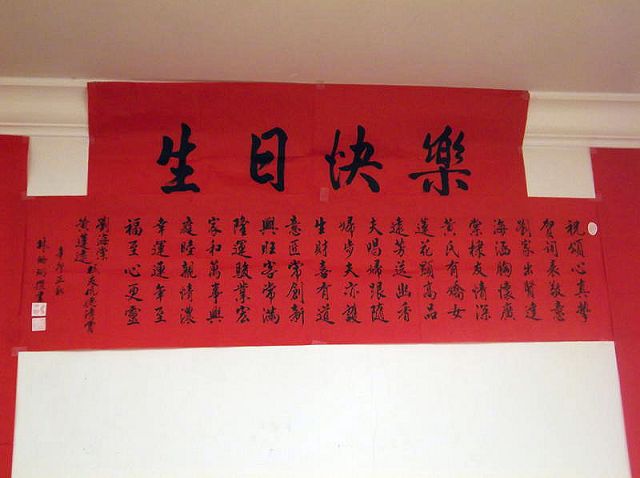 生日快樂
祝頌心真摯
賀詞表敬意
劉家出賢達
海涵胸懷廣
棠棣友情深
黃氏有嬌女
蓮花顯高品
遠芳送幽香
夫唱婦跟隨
婦步夫亦護
生財喜有道
意匠常創新
興旺客常滿
隆運駿業宏
家和萬事興
庭睦親情濃
幸運連年至
福至心更靈
劉海棠
黃蓮遠 伉儷清賞
林 撰書